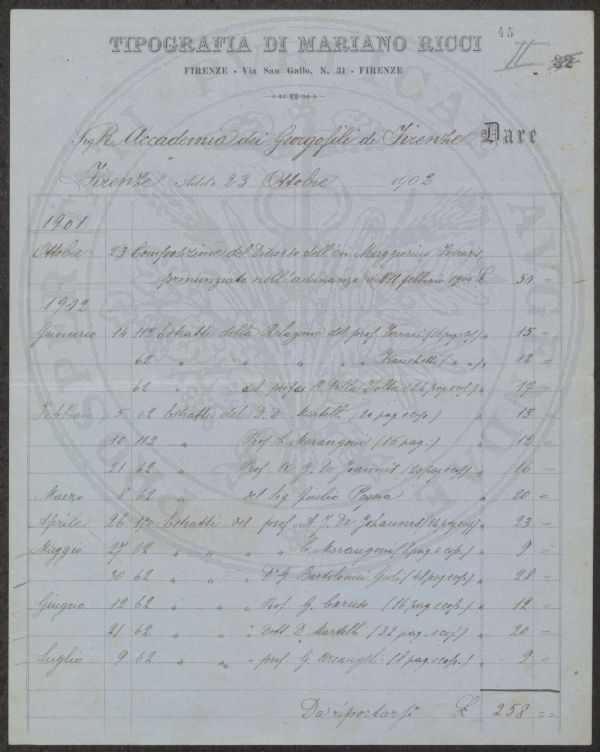 45
II 32
TIPOGRAFIA DI MARIANO RICCI
FIRENZE - Via San Gallo, N. 31 - FIRENZE
R. Accademia dei Georgofili di Firenze Dare
Firenze Addì 23 Ottobre 1902
1901
Ottobre 23 Composizione del Discorso dell'on. Maggiorino Ferraris,
pronunziato nell'adunanza del febbraio 1900 £ 50 =
1902
Gennaio 14 112 Estratti della Relazione del prof. Ferrari (16 pag. ) „ 15 =
62 „ „ „ „ Franchetti ( „ „ ) „ 12 =
62 „ del (24 pag. ecop.) „ 17 =
Febbraio 5 62 Estratti del D. D. Martelli (20 pag. ecop.) „ 15 =
10 112 „ Prof. C. Marangoni (16 pag.) „ 12 =
21 62 „ Prof. A. J. De Joannis (20 pag. ecop.) „ 16 =
Marzo 8 62 „ del Sig. Giulio Pegna „ 20 =
Aprile 26 150 Estratti del prof. A. J. De Johannis „ 23 =
Maggio 27 62 „ „ „ C. Marangoni ( pag. ecop.) „ 9 =
30 62 „ „ Dr. G. Bartolomei Gioli (48 pag. ecop.) „ 28 =
Giugno 12 62 „ „ Prof. G. Caruso (16 pag. ecop.) „ 12 =
21 62 „ „ dott. D. Martelli (32 pag. ecop.) „ 20 =
Luglio 9 62 „ „ prof. G. Arcangeli (8 pag. ecop.) „ 9 =
Da riportarsi £ 258 =
PROSPERITATI PUBLICAE AUGENDAE